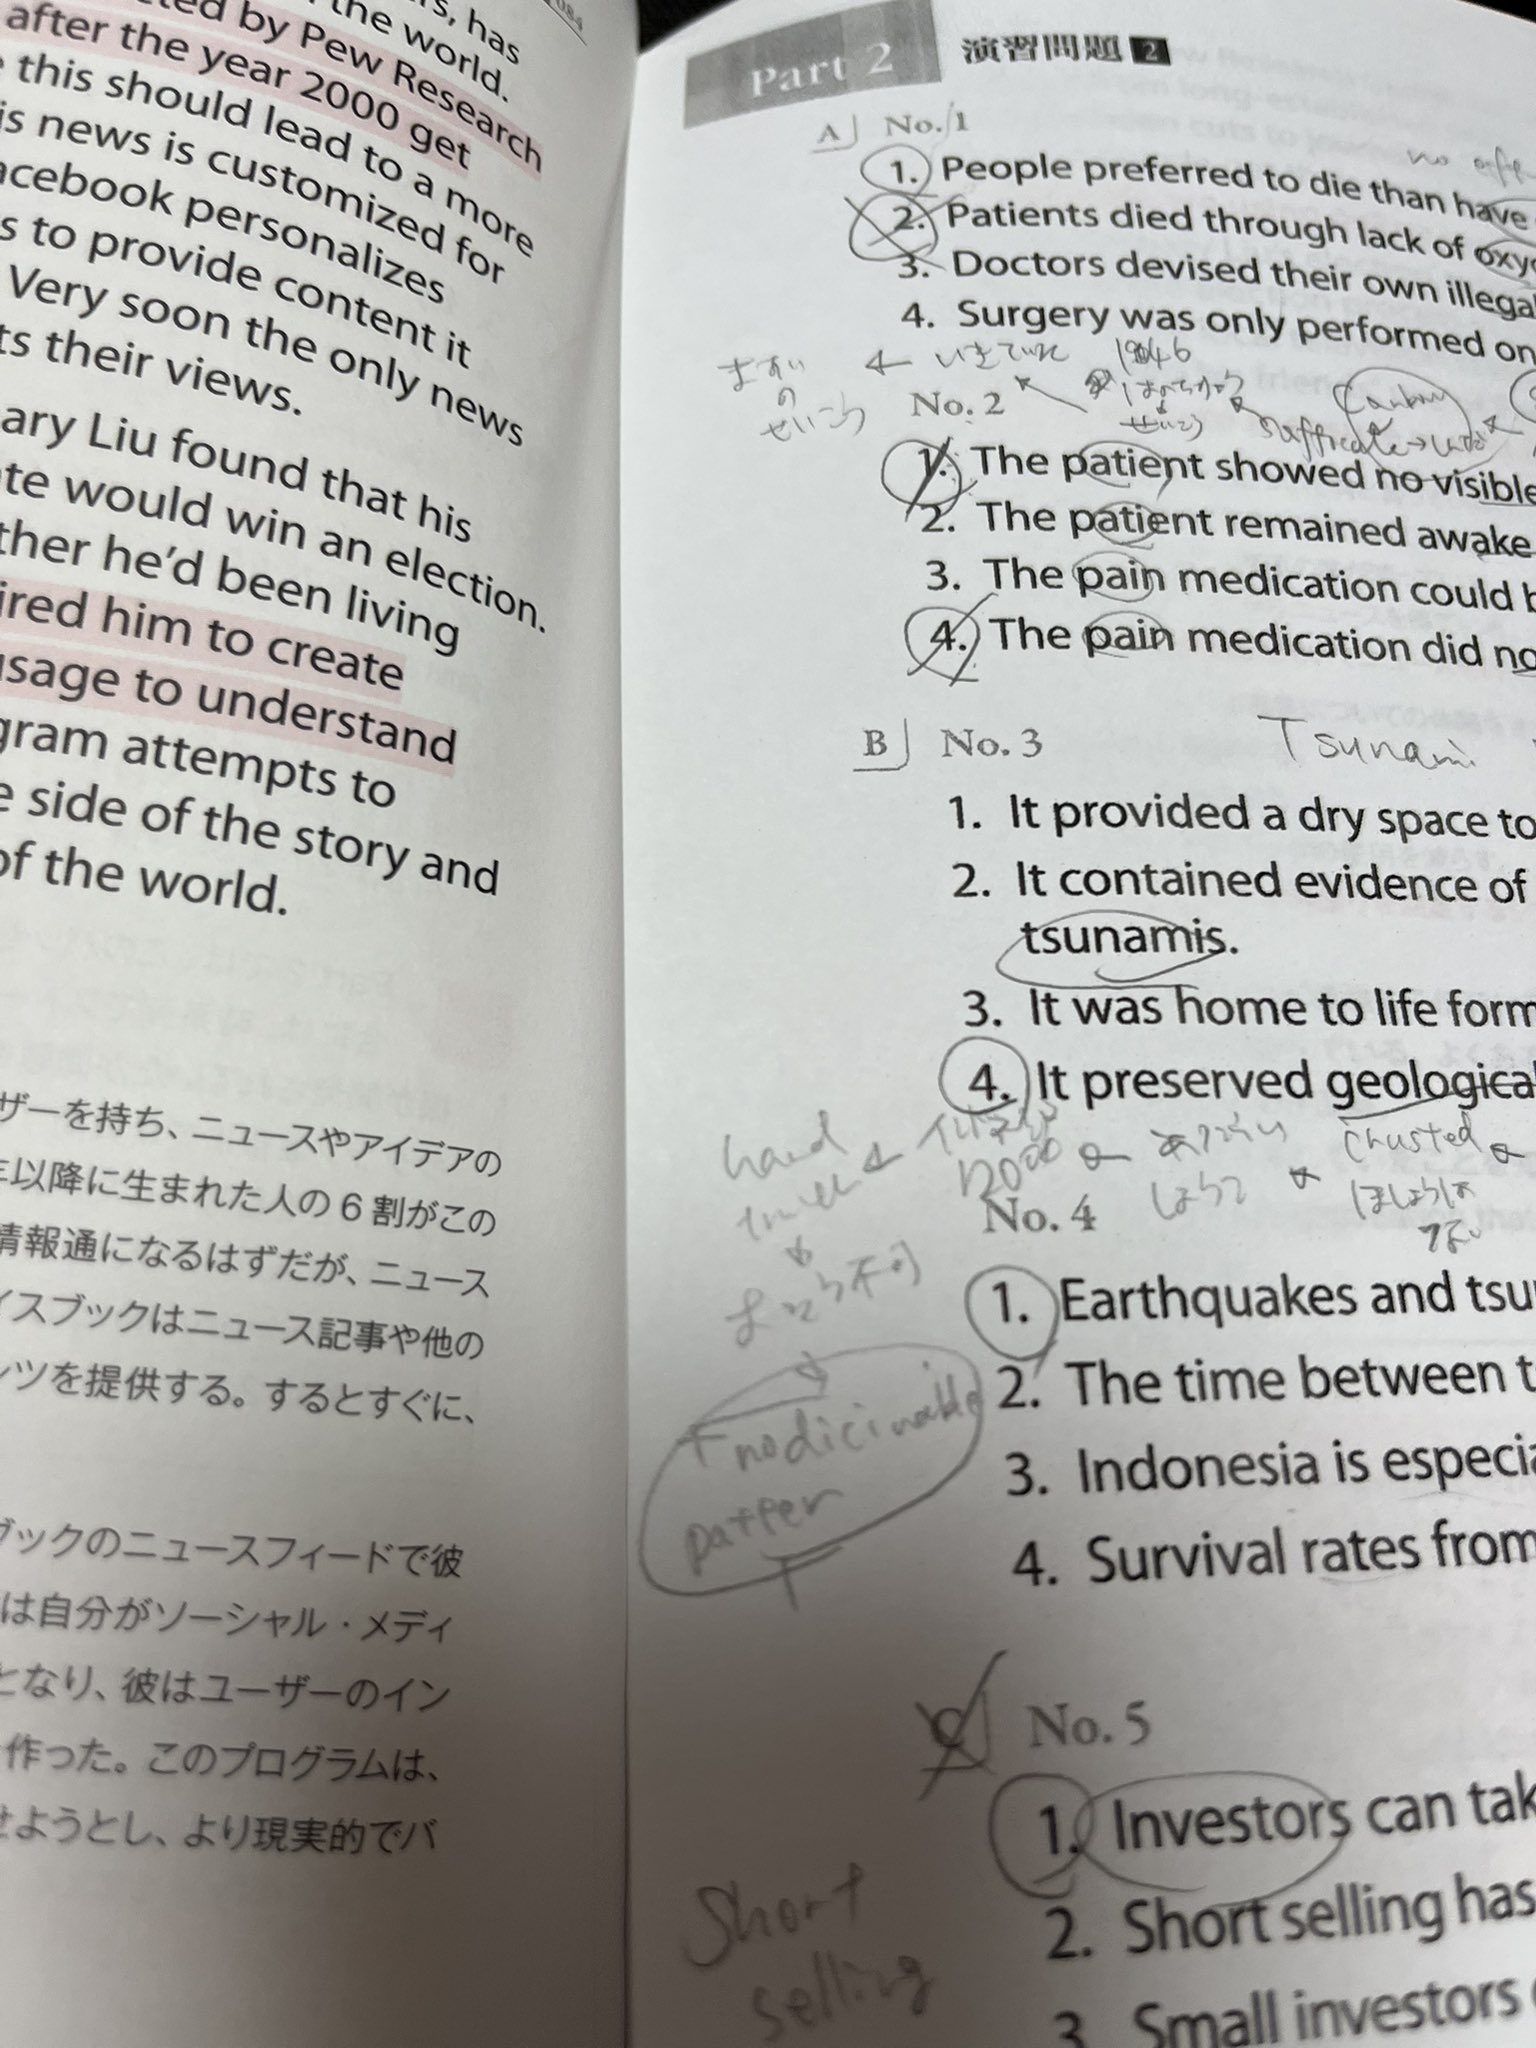 084
rs, has
the world.
ted by Pew Research
after the year 2000 get
this should lead to a more
is news is customized for
acebook personalizes
s to provide content it
Very soon the only news
ts their views.
ary Liu found that his
te would win an election.
ther he'd been living
ired him to create
usage to understand
gram attempts to
e side of the story and
of the world.
ザーを持ち、ニュースやアイデアの
年以降に生まれた人の6割がこの
情報通になるはずだが、ニュース
イスブックはニュース記事や他の
ンツを提供する。するとすぐに、
ブックのニュースフィードで彼
は自分がソーシャル・メディ
となり、彼はユーザーのイン
作った。このプログラムは、
せようとし、より現実的でバ
Part 2 演習問題 2
A No. 1
no
1. People preferred to die than have
2. Patients died through lack of oxyg
3. Doctors devised their own illegal
4. Surgery was only performed on
ますい ← いきていれ 1846
の
せいこう
せいこう
No. 2
1. The patient showed no visible
2. The patient remained awake
3. The pain medication could b
4. The pain medication did no
B No. 3 Tsunami
1. It provided a dry space to
2. It contained evidence of
tsunamis.
3. It was home to life form
4. It preserved geological
hand
不可
No. 4
1. Earthquakes and tsu
2. The time between t
3. Indonesia is especia
4. Survival rates from
pattern
C No. 5
1. Investors can tak
2. Short selling has
3. Small investors
Short
selling